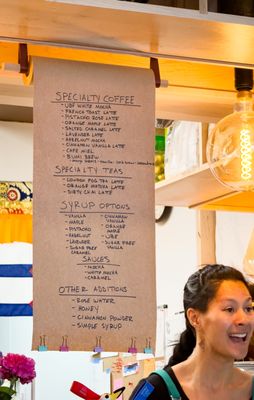 SPECIALTY COFFEE
- UBE WHITE MOCHA
- FRENCH TOAST LATTE
- PISTACHIO ROSE LATTE
- ORANGE MAPLE LATTE
- SALTED CARAMEL LATTE
- LAVENDER LATTE
- HAZELNUT MOCHA
- CINNAMON VANILLA LATTE
- CAFE MIEL
- BUMI BREW
SPECIALTY TEAS
- LONDON FOG TEA LATTE
- ORANGE MATCHA LATTE
- DIRTY CHAI LATTE
SYRUP OPTIONS
- VANILLA
- MAPLE
- PISTACHIO
- HAZELNUT
- LAVENDER
- SUGAR FREE
CARAMEL
- CINNAMON
VANILLA
- ORANGE
MAPLE
- UBE
- SUGAR FREE
VANILLA
SAUCES
- MOCHA
- WHITE MOCHA
- CARAMEL
OTHER ADDITIONS
- ROSE WATER
- HONEY
- CINNAMON POWDER
- SIMPLE SYRUP